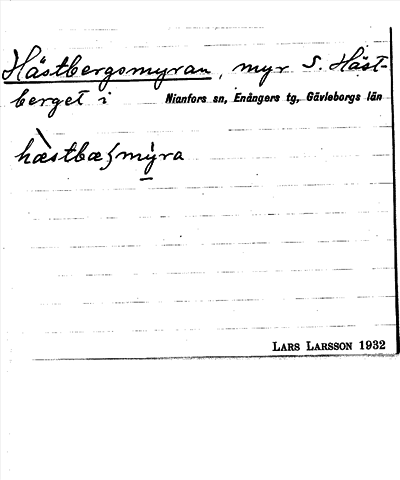 Hästbergsmyran, myr S. Häst-
berget i Nianfors sn, Enångers tg, Gävleborgs län
hæ̀stbæʃmẏ̠ra
LARS LARSSON 1932